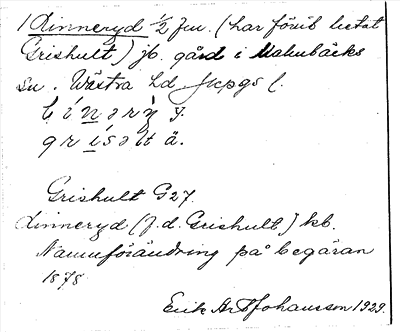 1 Linneryd 1/2 fm. (har förut hetat
Grishult) jb. gård i Malmbäcks
sn. Västra hd Jkpgs l.
línərỳ y.
grísəlt ä.
Grishult G27.
Linneryd (f.d. Grishult) kb.
Namnförändring på begäran
1878
Erik Arf Johansson 1929.